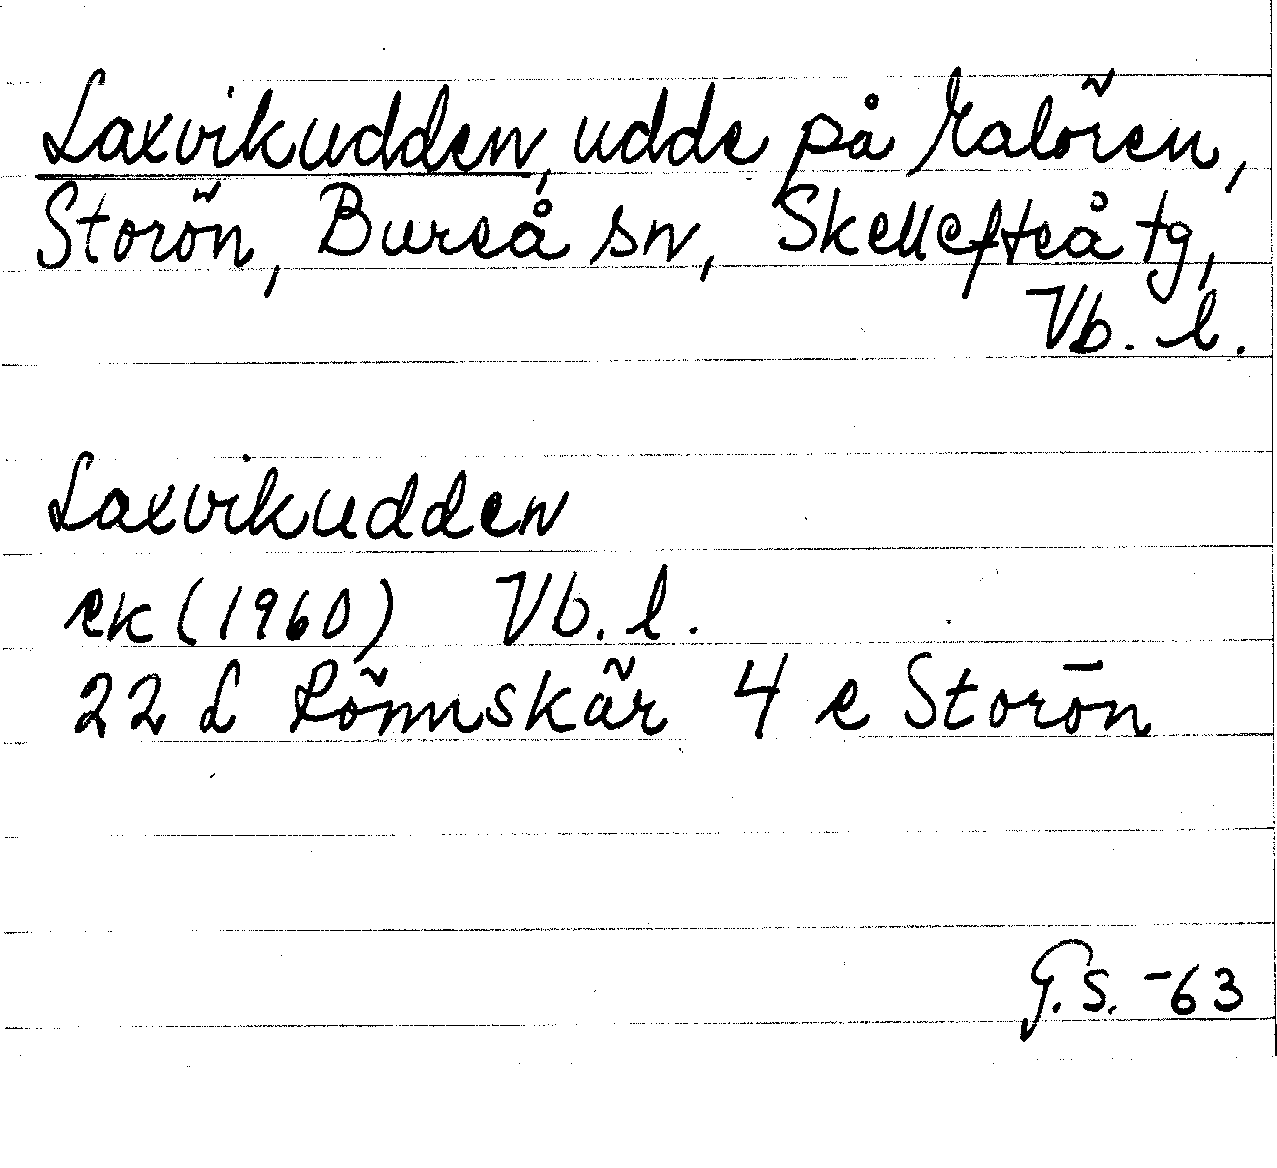 Laxvikudden, udde på Halören,
Storön, Bureå sn, Skellefteå tg,
Vb. l.
Laxvikudden
ek (1960) Vb. l.
22 L Rönnskär 4 e Storön
G.S. -63